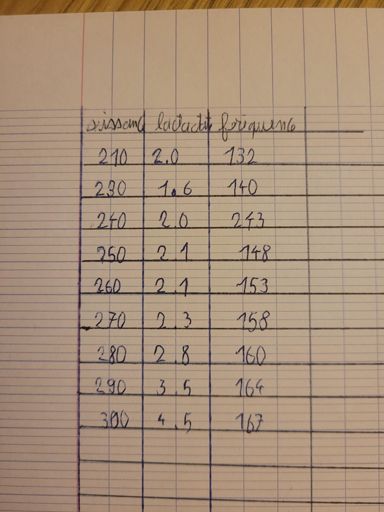 puissance lactate fréquence
210 2.0 132
230 1.6 140
240 2.0 243
250 2.1 148
260 2.1 153
270 2.3 158
280 2.8 160
290 3.5 164
300 4.5 167